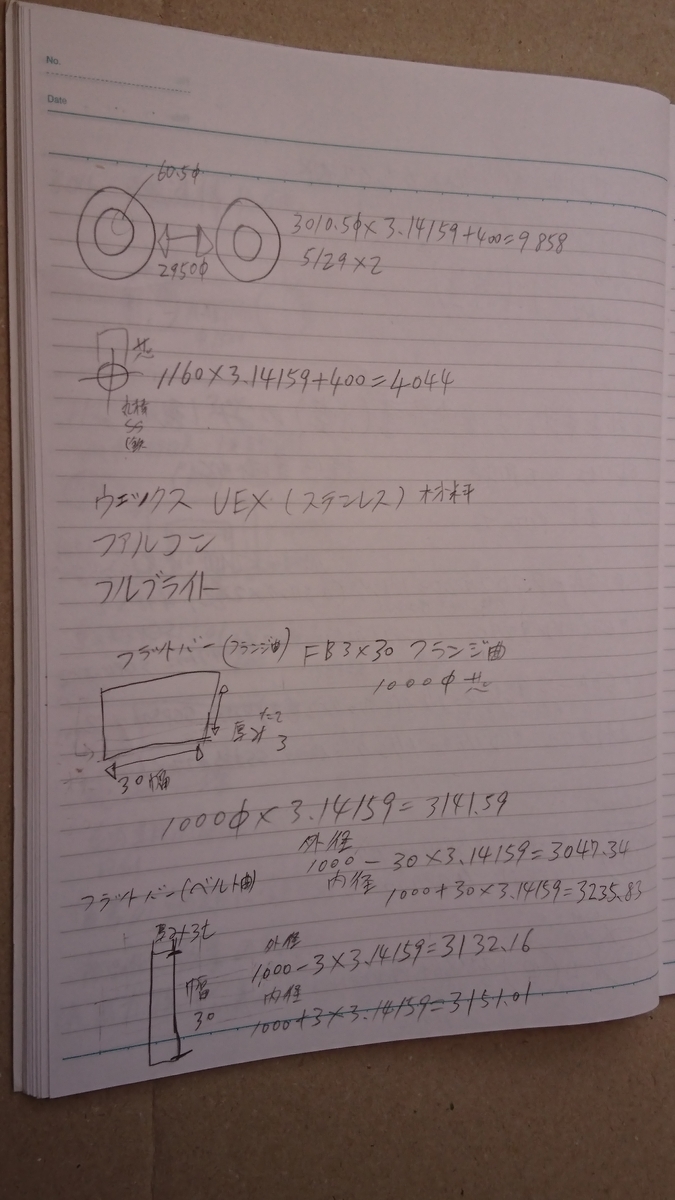 No.
Date
60.5φ
2950φ
3010.5φ×3.14159+400=9858
5129×2
芯
1160×3.14159+400=4044
SS
ウェックス UEX (ステンレス) 材料
ファルコン
フルブライト
フラットバー(フランジ曲) FB3×30 フランジ曲
1000φ芯
厚み 3
30 幅
1000φ×3.14159=3141.59
外径
1000-30×3.14159=3047.34
内径
1000+30×3.14159=3235.83
フラットバー(ベルト曲)
3t
幅
30
外径
1000-3×3.14159=3132.16
内径
1000+3×3.14159=3151.01